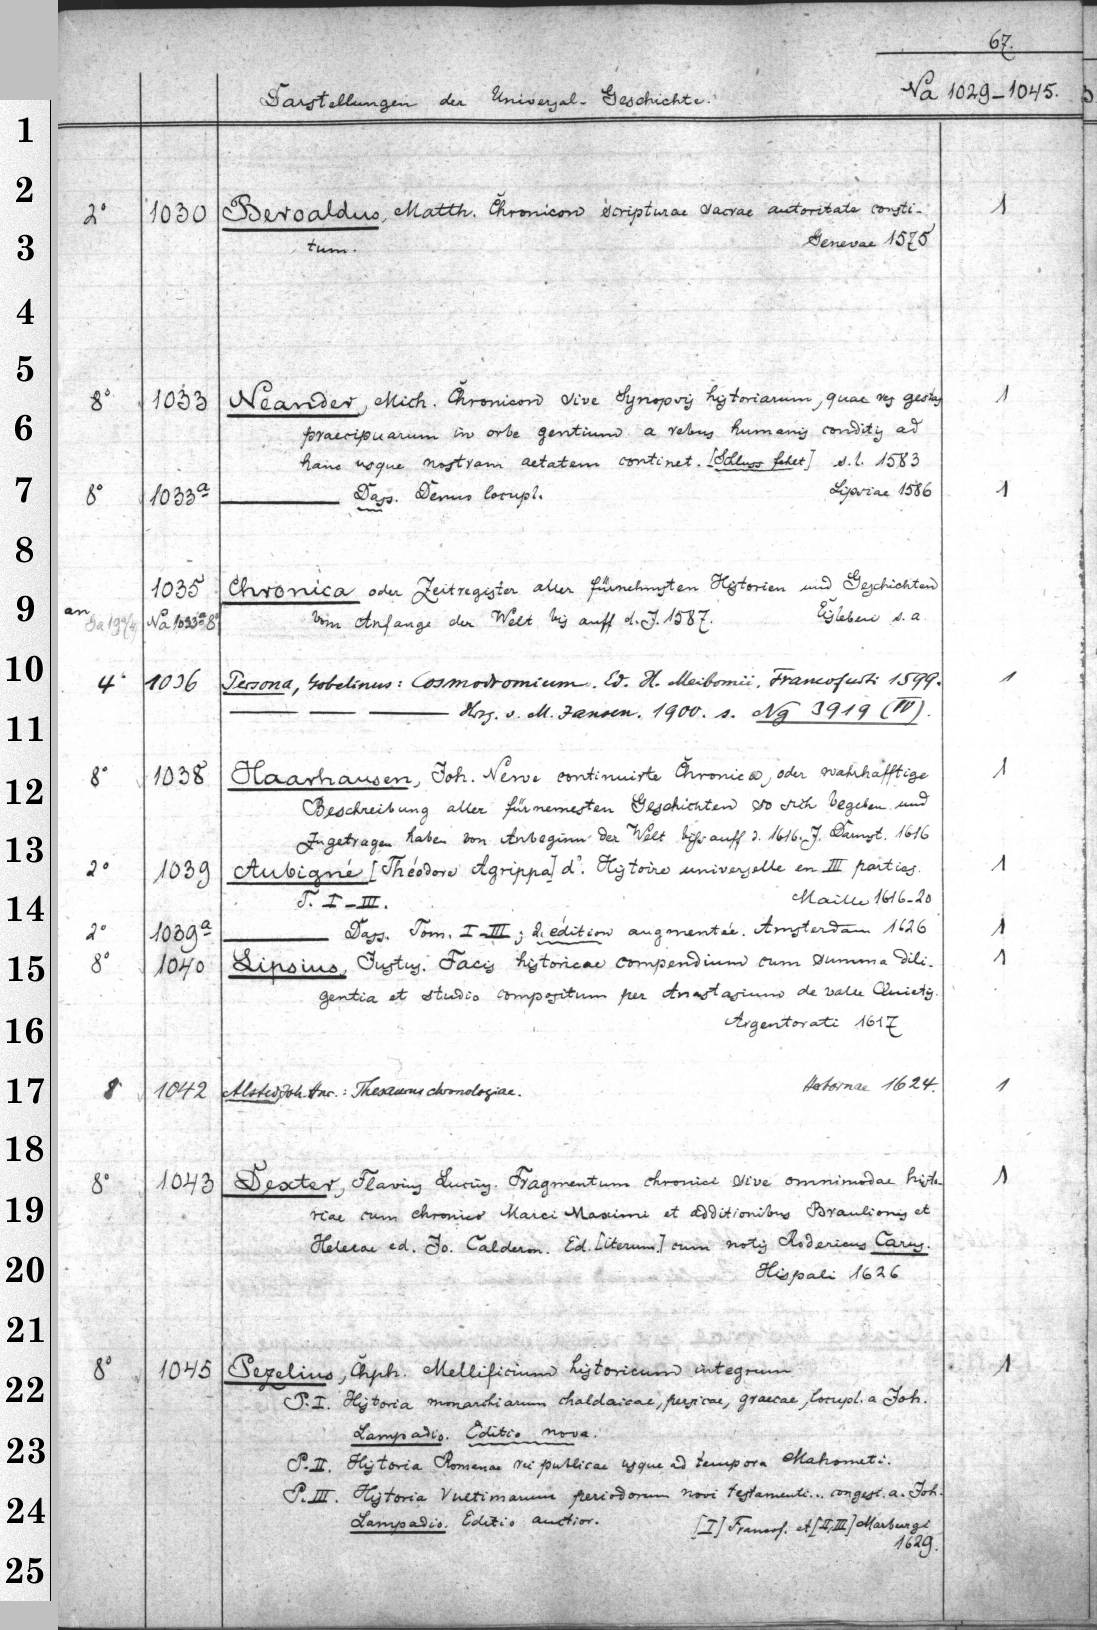 67.
Darstellungen der Universal-Geschichte.
Na 1029-1045.
1
2
2° 1030 Beroaldus, Matth. Chronicon scripturae sacrae autoritate consti- 1
3
tum. Genevae 1575
4
5
8° 1033 Neander, Mich. Chronicon sive Synopsis historiarum, quae res gestas 1
6
praecipuarum in orbe gentium a rebus humanis conditis ad
hanc usque nostram aetatem continet. [Schluss fehlt] s.l. 1583
7
8° 1033a ——— Dass. Denuo locupl. Lipsiae 1586 1
8
1035 Chronica oder Zeitregister aller fürnehmsten Historien und Geschichten
9
an Na 1033a 8° vom Anfange der Welt bis auff d. J. 1587. Eisleben s. a.
10
4° 1036 Persona, Gobelinus: Cosmodromium. Ed. H. Meibomii. Francofurti 1599. 1
11
—— — —— Hrsg. v. M. Jansen. 1900. s. Ng 3919 (IV).
8° 1038 Haarhausen, Joh. Newe continuirte Chronica, oder wahrhafftige 1
12
Beschreibung aller fürnemesten Geschichten so sich begeben und
zugetragen haben von Anbeginn der Welt biss auff d. 1616. J. Darmst. 1616
13
2° 1039 Aubigné [Théodore Agrippa] d'. Histoire universelle en III parties. 1
14
T. I-III. Maille 1616-20
2° 1039a ——— Dass. Tom. I-III; 2. édition augmentée. Amsterdam 1626 1
15
8° 1040 Lipsius, Justus. Facis historicae compendium cum summa dili- 1
gentia et studio compositum per Anastasium de valle Quietis.
16
Argentorati 1617
17
8° 1042 Alsted, Joh. Hnr.: Thesaurus chronologiae. Herbornae 1624. 1
18
8° 1043 Dexter, Flavius Lucius. Fragmentum chronici sive omnimodae histo- 1
19
riae cum chronico Marci Maximi et additionibus Braulionis et
Helecae ed. Jo. Calderon. Ed. [iterum] cum notis Rodericus Carus.
20
Hispali 1626
21
8° 1045 Pezelius, Chph. Mellificium historicum integrum 1
22
P. I. Historia monarchiarum chaldaicae, persicae, graecae, locupl. a Joh.
Lampadio. Editio nova.
23
P. II. Historia Romanae rei publicae usque ad tempora Mahometi.
P. III. Historia vultimarum periodorum novi testamenti... congest. a. Joh.
24
Lampadio. Editio auctior. [I] Francof. et [II, III] Marburgi
1629.
25